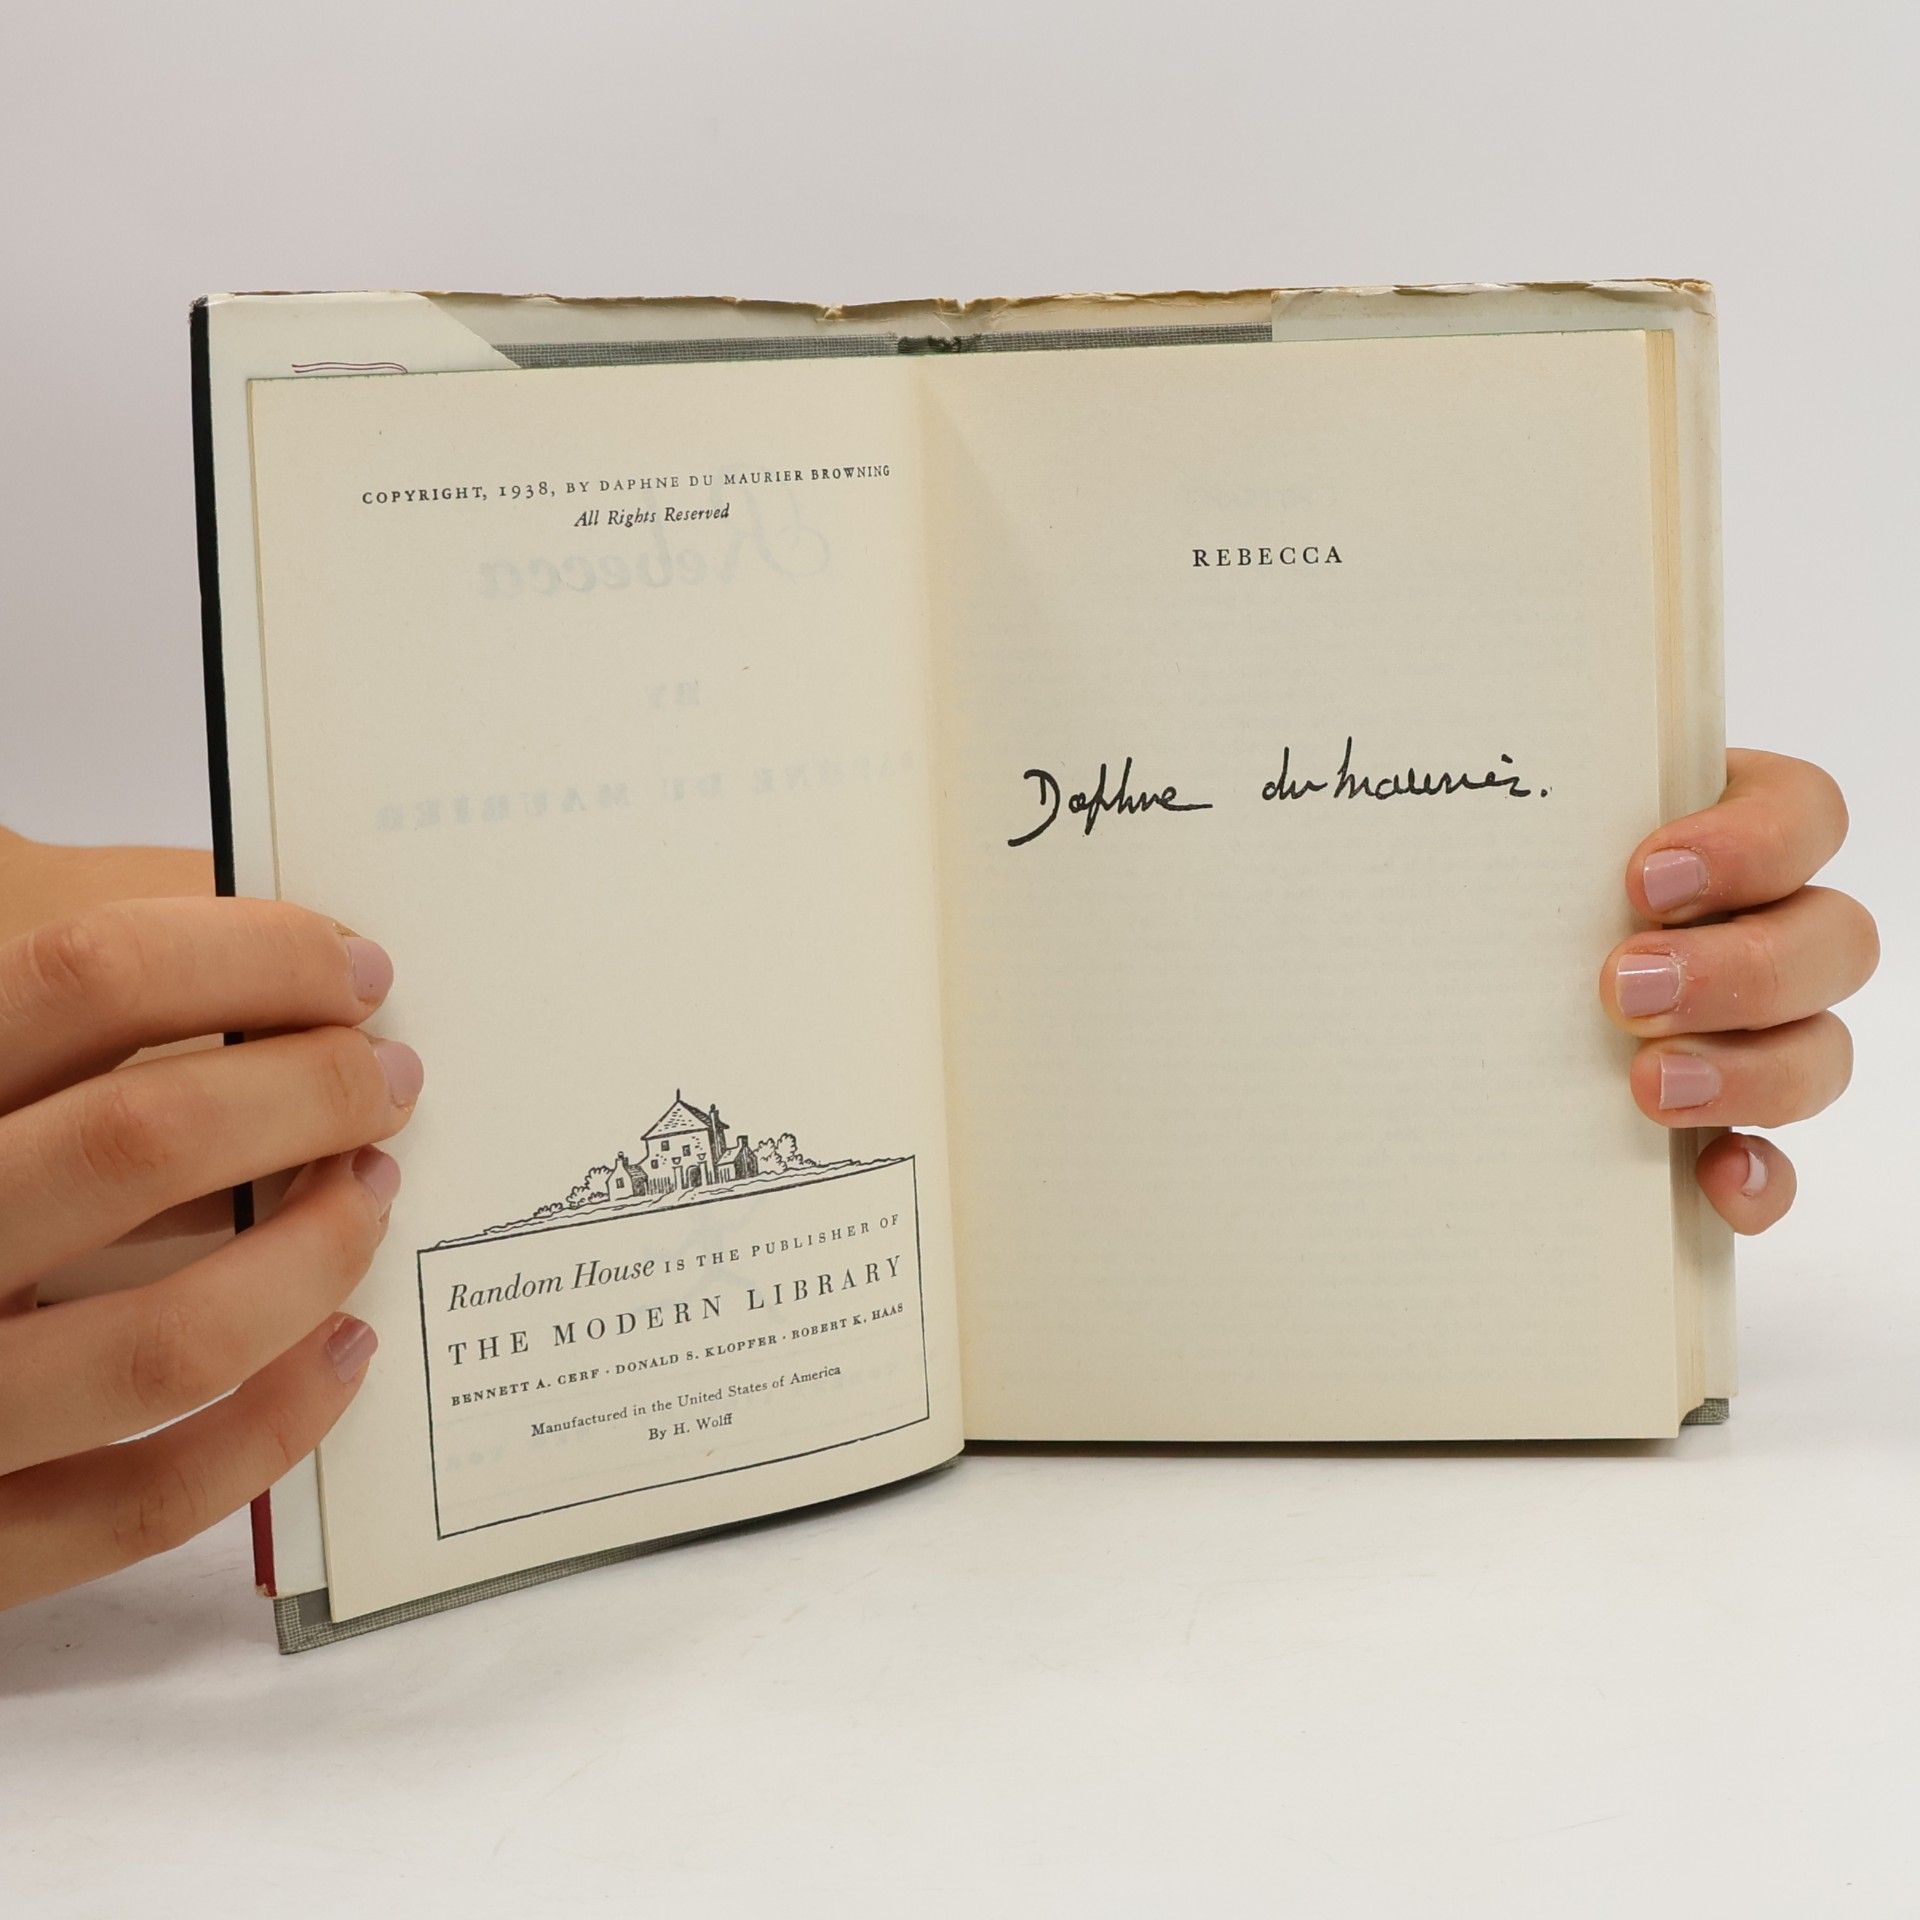 COPYRIGHT, 1938, BY DAPHNE DU MAURIER BROWNING
All Rights Reserved
Random House IS THE PUBLISHER OF
THE MODERN LIBRARY
BENNETT A. CERF · DONALD S. KLOPFER · ROBERT K. HAAS
Manufactured in the United States of America
By H. Wolff
REBECCA
Daphne du Maurier.